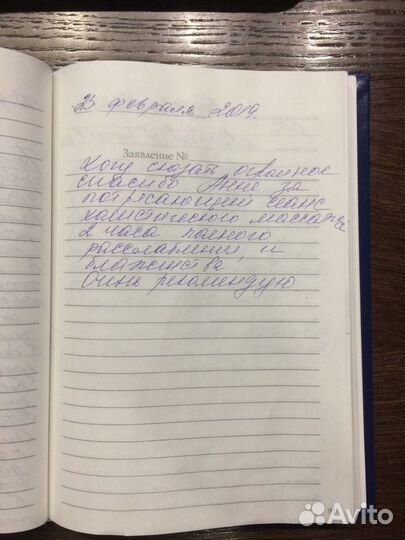 23 февраля 2019.
Заявление №
Хочу сказать огромное
спасибо Анне за
потрясающий сеанс
халистического массажа
2 часа полного
расслабления и
блаженства
Очень рекомендую.
Avito